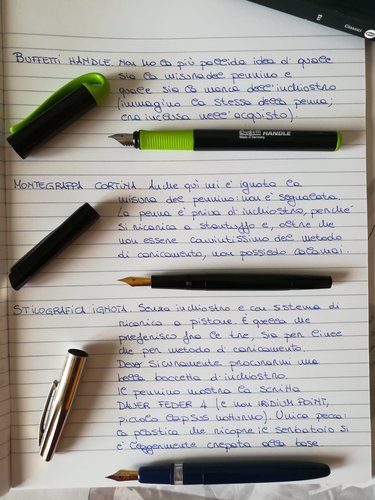 Classici
BUFFETTI HANDLE. Non ho la più pallida idea di quale
sia la misura del pennino e
quale sia la marca dell'inchiostro
(immagino la stessa della penna;
era inclusa nell'acquisto).
Buffetti HANDLE
Made in Germany
MONTEGRAPPA CORTINA. Anche qui mi è ignota la
misura del pennino: non è segnalata
La penna è priva d'inchiostro, perché
si ricarica a stantuffo e, oltre che
non essere convintissimo del metodo
di caricamento, non possiedo calamai.
STILOGRAFICA IGNOTA. Senza inchiostro e con sistema di
ricarica a pistone. È quella che
preferisco fra le tre, sia per linee
che per metodo di caricamento.
Devo sicuramente procurarmi una
bella boccetta d'inchiostro.
Il pennino mostra la scritta
DAUER FEDER 4 (e non IRIDIUM POINT,
piccolo lapsus notturno). Unica pecca:
la plastica che ricopre il serbatoio si
è leggermente crepata alla base